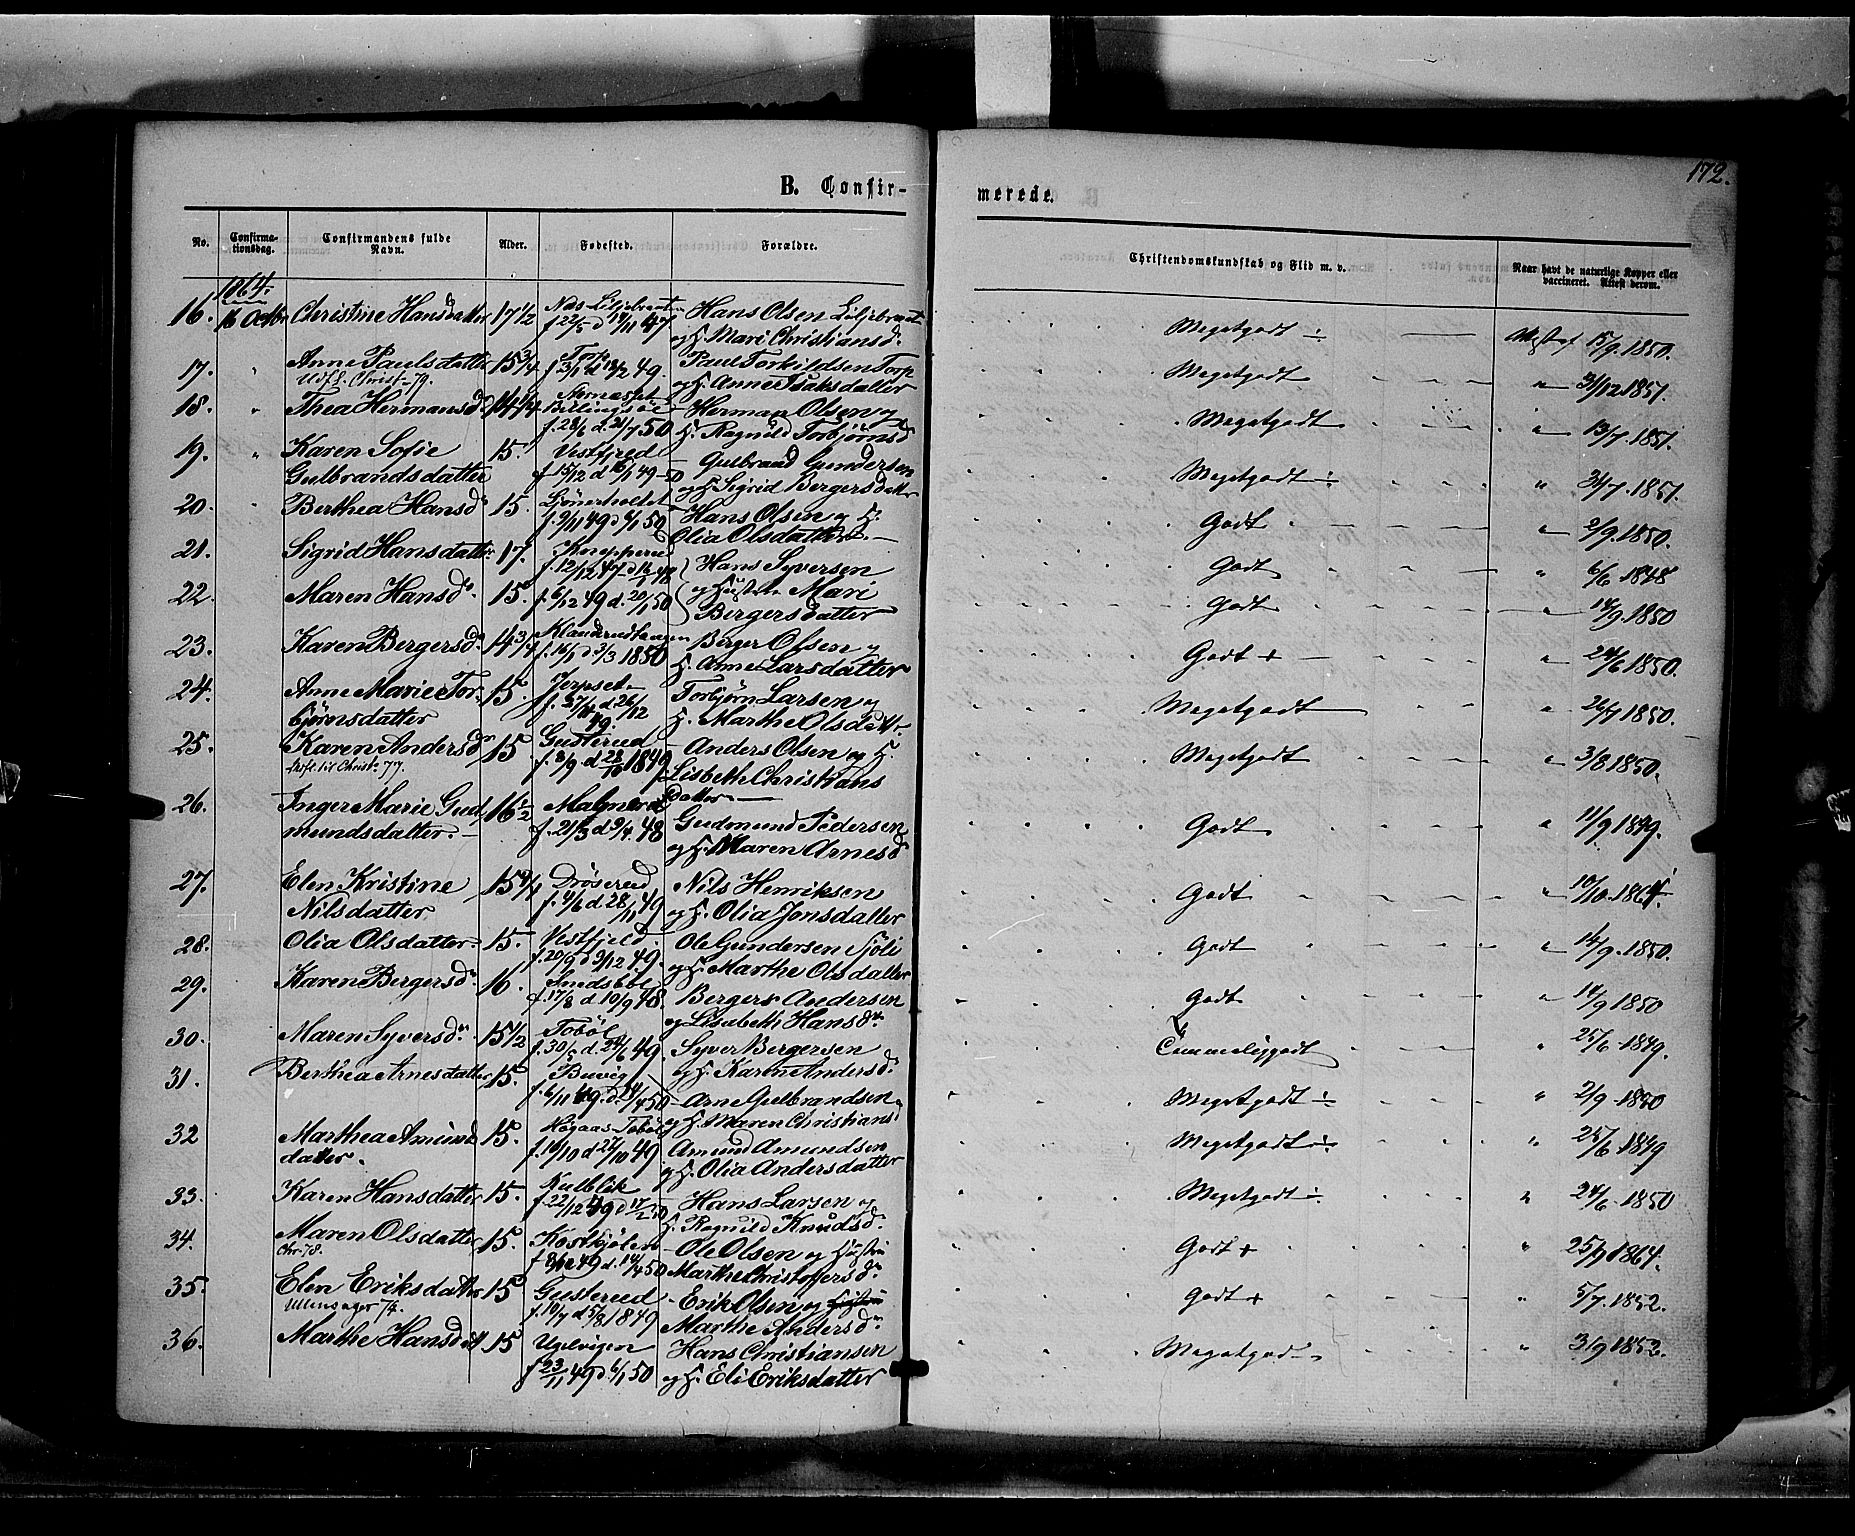 172.
B. Confir-
merede.
No.
Confirma-
tionsdag.
Confirmandens fulde
Navn.
Alder.
Fødested.
Forældre.
Christendomskundskab og Flid m. v.
Naar havt de naturlige Kopper eller
vaccineret. Attest derom.
1864.
16. 16 Octbr Christine Hansdatter 17 1/2 Næs Liljebraaten Hans Olsen Liljebraaten Megetgodt ÷ Attestaf 15/9. 1850.
f 22/5 d 17/11 47 og H. Mari Christiansd.
17. " Anne Paulsdatter 15 3/4 Torp Paul Torkildsen Torp Megetgodt " 31/12 1851.
Udfl. Christ. 79. f 3/1 d 18/2 49. og H. Anne Isaksdatter
18. " Thea Hermansd 14 1/4 Billingsøe Herman Olsen og Megetgodt " 13/7. 1851.
f. 28/6 d. 21/7 50 H. Ragnild Torbjørnsd
19. " Karen Sofie 15. Vestfjeld Gulbrand Gundersen Megetgodt ÷ " 31/7. 1851.
Gulbrandsdatter f 15/12 d 16/1 49-50 og H. Sigrid Bergersdatter
20. Berthea Hansd. 15. Hans Olsen og H. Godt " 2/9. 1850.
f. 9/11 49 d 6/1 50 Olia Olsdatter
21. Sigrid Hansdatter 17. Knapperud Hans Syversen Godt " 6/6 1848
f. 12/12 47 d 16/1 48 og Hustru Mari
22. Maren Hansd. 15. f. 6/12 49 d. 20/1 50 Bergersdatter Godt 14/9. 1850
23. Karen Bergersd. 14 3/4 Klanderudtangen Berger Olsen og Godt + " 24/6 1850.
f. 16/1 d 3/3 1850 H. Anne Larsdatter
24. Anne Marie Tor 15. Jerpset Torbjørn Larsen og Megetgodt " 26/7 1850.
bjørnsdatter 49. H. Marthe Olsdatt-
25. Karen Andersd 15 Gusterud Anders Olsen og H. Megetgodt " 3/8 1850.
Udfl. til Christ. 77. f. 8/9 d 28/10 1849 Lisbeth Christians
datter
26. Inger Marie Gud 16 1/2 Malnerud Gudmund Pedersen Godt " 11/9 1849.
mundsdatter. f. 21/3 d 9/4. 48 og H. Maren Arnesd
27. Elen Kristine 15 Drøserud Nils Henriksen Godt " 10/10. 1864.
Nilsdatter f. 4/6 d. 28/11 49 og H. Olia Jonsdatter
28. Olia Olsdatter 15. Vestfjeld. Ole Gundersen Sjöli Godt " 14/9. 1850.
f. 20/9 d 9/12 49. og H. Marthe Olsdatter
29. Karen Bergersd. 16. Smedsbøl Bergers Andersen Godt " 14/9 1850
f. 17/8 d 10/9 48. og Lisabeth Hansd.
30. Maren Syversd. 15 1/2 Tobøl Syver Bergersen Temmeliggodt " 25/6 1849.
f. 30/5 d. 24/6 49. og H. Karen Andersd.
31. Berthea Arnesdatter 15. Buvig Arne Gulbrandsen Megetgodt ÷ " 2/9 1850
f. 6/11 49. d. 14/4 50 og H. Maren Christiansd
32 Marthea Amund 15. Høgaas Tobøl Amund Amundsen Megetgodt ÷ " 25/6 1849
datter. f. 10/10 d 27/10 49 og H. Olia Andersdatter
33. Karen Hansdatter 15. Kulblik Hans Larsen og Megetgodt ÷ " 24/6 1850
f. 22/12 49 d 17/2 50 H. Ragnild Knudsd.
34. Maren Olsdatter 15. Kostkjølen Ole Olsen og Hustru Godt + " 25/9 1864.
Chr. 78. f 8/12 49 d. 14/4 50 Marthe Christoffersd.
35. Elen Eriksdatter 15 Gusterud Erik Olsen og Hustru Godt + " 5/7. 1852.
Ullensager 74. f. 10/7 d 5/8 1849 Marthe Andersd.
36. Marthe Hansdatt 15 Ugelvigen Hans Christiansen Megetgod " 3/9 1853.
f 23/11 49 d 6/1 50 og H. Eli Eriksdatter